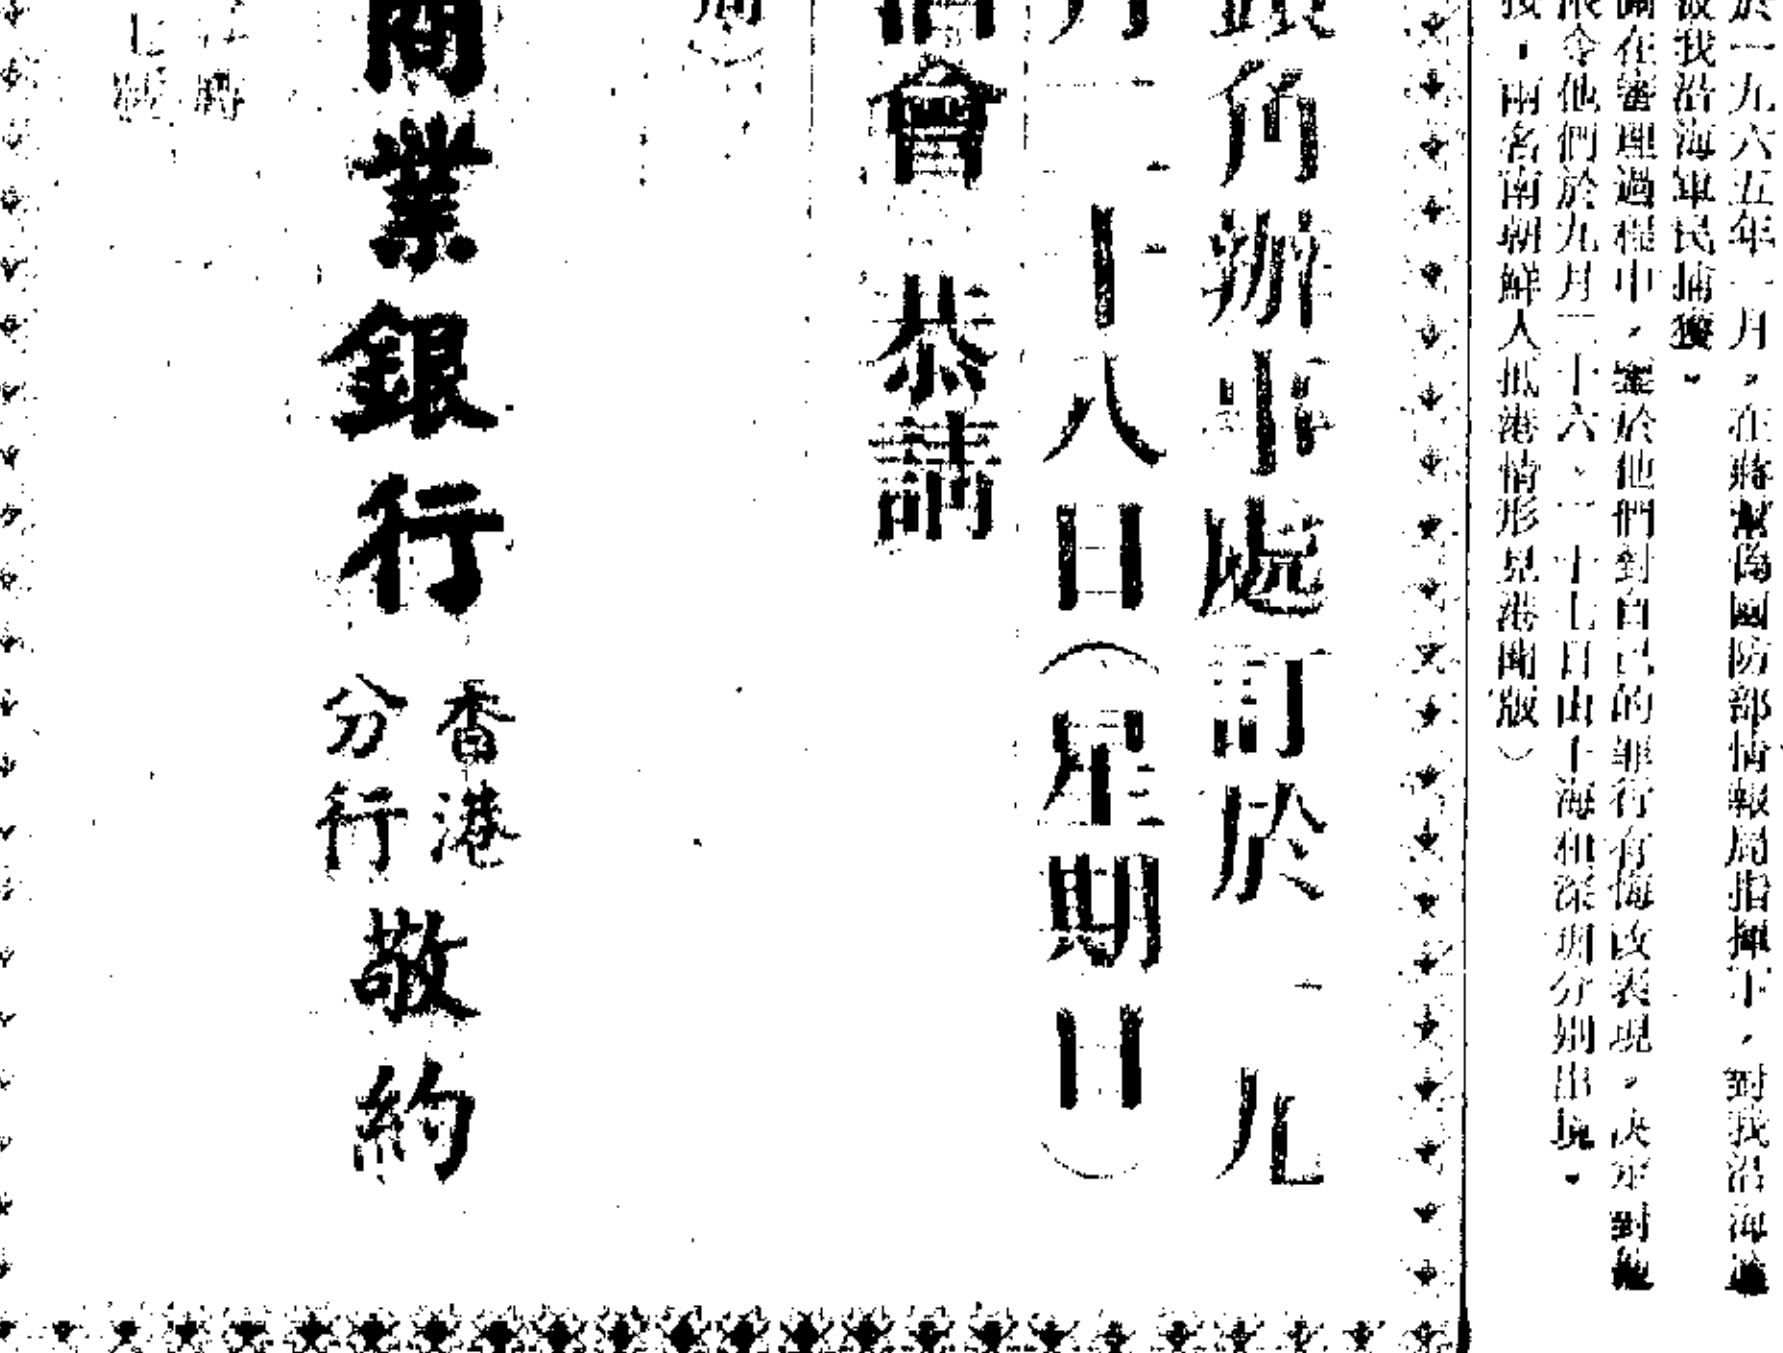 於一九六五年一月，在蔣幫偽國防部情報局指揮下，對我沿海
被我沿海軍民捕獲。
在審理過程中，鑒於他們對自己的罪行有悔改表現，決定對他
限令他們於九月二十六、二十七日由上海和深圳分別出境。
按，兩名南朝鮮人抵港情形見港聞版）
銀角辦事處訂於一九
月二十八日（星期日）
酒會 恭請
商業銀行
香港
分行
敬約